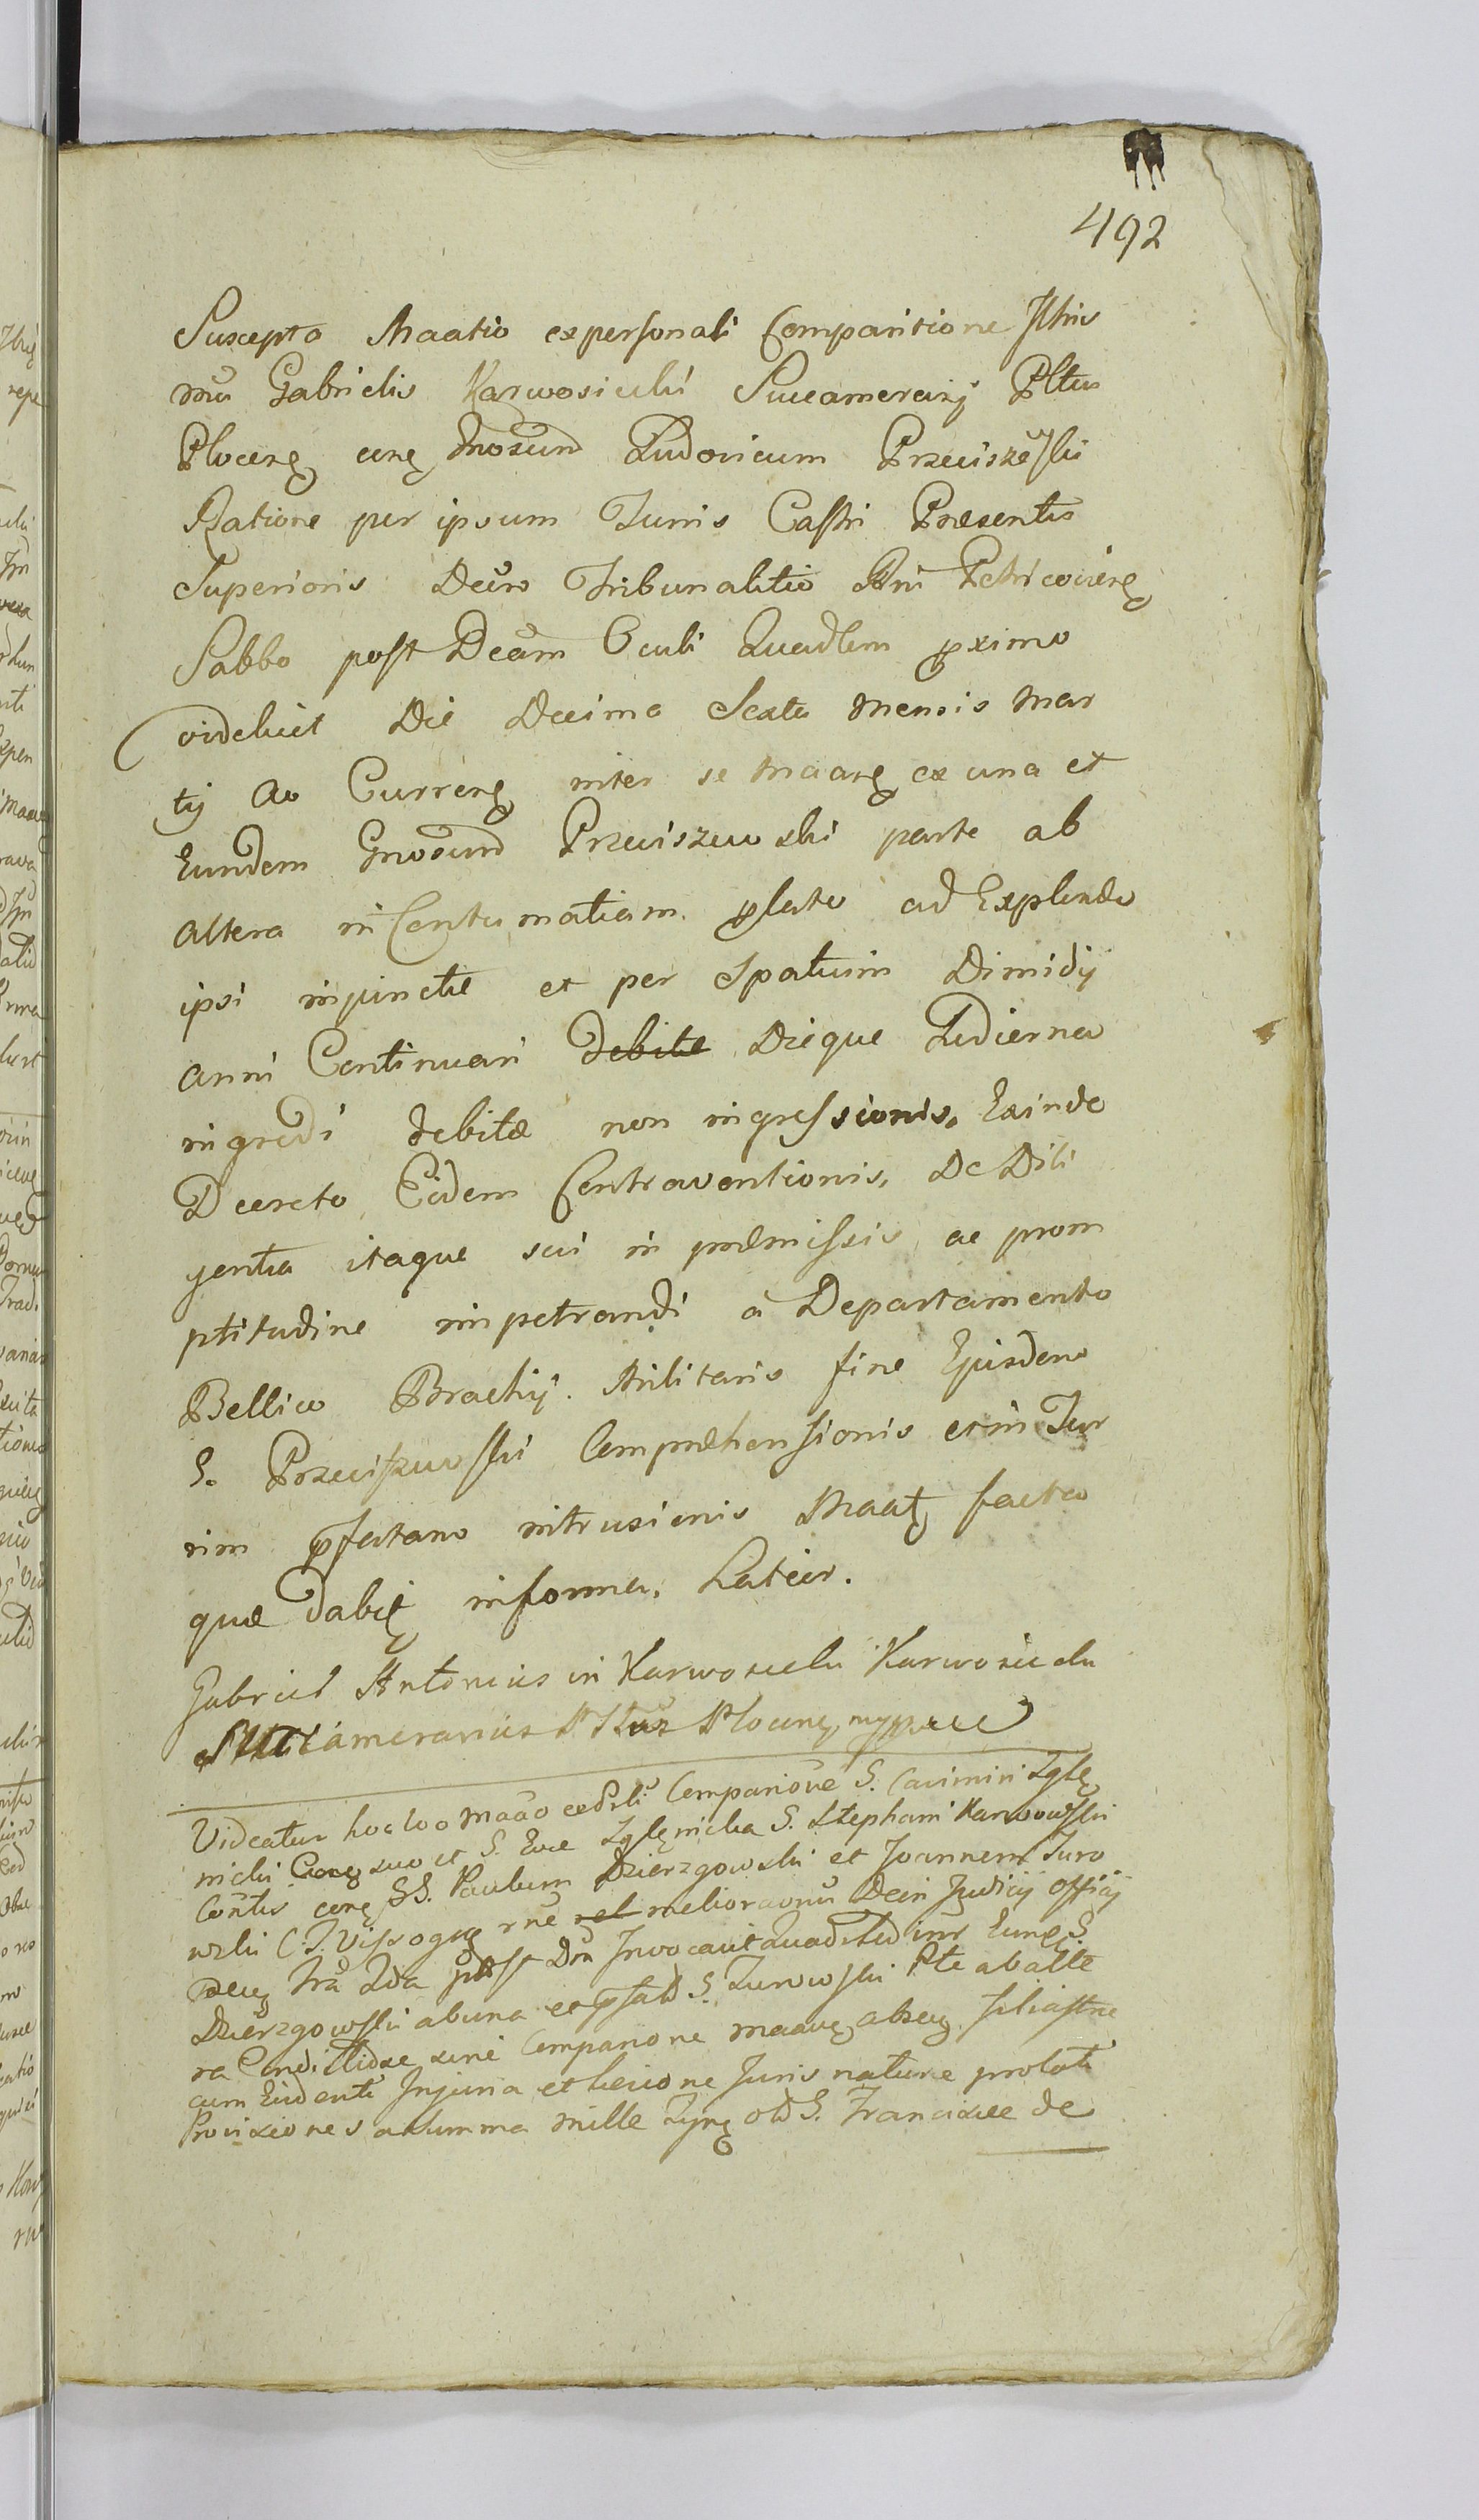 492
Suscepta Maatio ex personali Comparitione Illris
mũ Gabrielis Karwosiecki Succamerarij Pltus
Plocenę cunę Gnosum Ludovicum Przeciszewski
Ratione per ipsum Turris Castri Presentis
Superioris Decro Tribunalitio Rni Petricovienę
Sabbo post Dcam Oculi Quadlem pximo
videlicet Die Decima Sexta Mensis Mar
tij Ao Currenę inter se Maanę ex una et
Eundem Gnosum Przeciszewski parte ab
altera in Contumatiam plato ad Explendo
ipsi injunctæ et per Spatium Dimidij
anni Continuari debitæ Dieque Hodierna
ingredi debitæ non ingressionis, Exinde
Decreto Eidem Contraventionis, De Dili
gentia itaque sui in præmissis ac prom
ptitudine impetrandi a Departamento
Bellico Brachij Militaris fine Ejusdem
G. Przeciszewski Compræhensionis et in Tur
rim pfatam intrusionis Maatę facta
quæ dabię informa, Latior.
Gabriel Antonius in Karwosieki Karwosiecki
Succamerarius Pltus Plocenę mppa
Videatur hoc loo Maao ex psli Comparione G. Casimiri Zglę
nicki suo et G. Eva Zglęnicka G. Stephani Karwowski
Contis conę GG. Paulum Dzierzgowski et Joannem Zuro
wski C. T. Vissogię rne melioraonũ Decri Judicij Officij
fra 2da post Dcã Invocavit Quadltd inr Eunę G.
Dzierzgowski ab una et pfatũ G. Zurowski Pte ab alte
ra Condi sine Comparione Maanę
cum Evidenti Injuria et lesione Juris nature prolati
Provisiones a Summa Mille Tynę old G. Franciscæ de